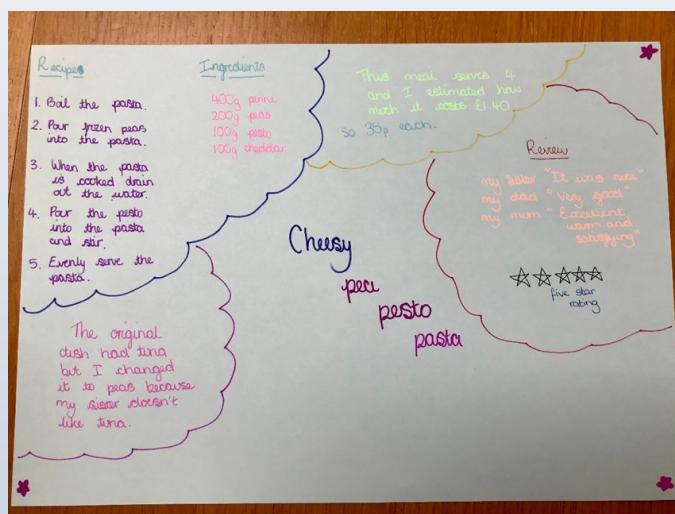 Recipes
1. Boil the pasta.
2. Pour frozen peas
into the pasta.
3. When the pasta
is cooked drain
out the water.
4. Pour the pesto
into the pasta
and stir.
5. Evenly serve the
pasta.
Ingredients
400g penne
200g peas
100g pesto
100g cheddar
This meal serves 4
and I estimated how
much it costs £1.40
so 35p each.
Review
my sister "It was nice"
my dad "Very good"
my mum "Excellent,
warm and
satisfying"
five star
rating
Cheesy
pea
pesto
pasta
The original
dish had tuna
but I changed
it to peas because
my sister doesn't
like tuna.